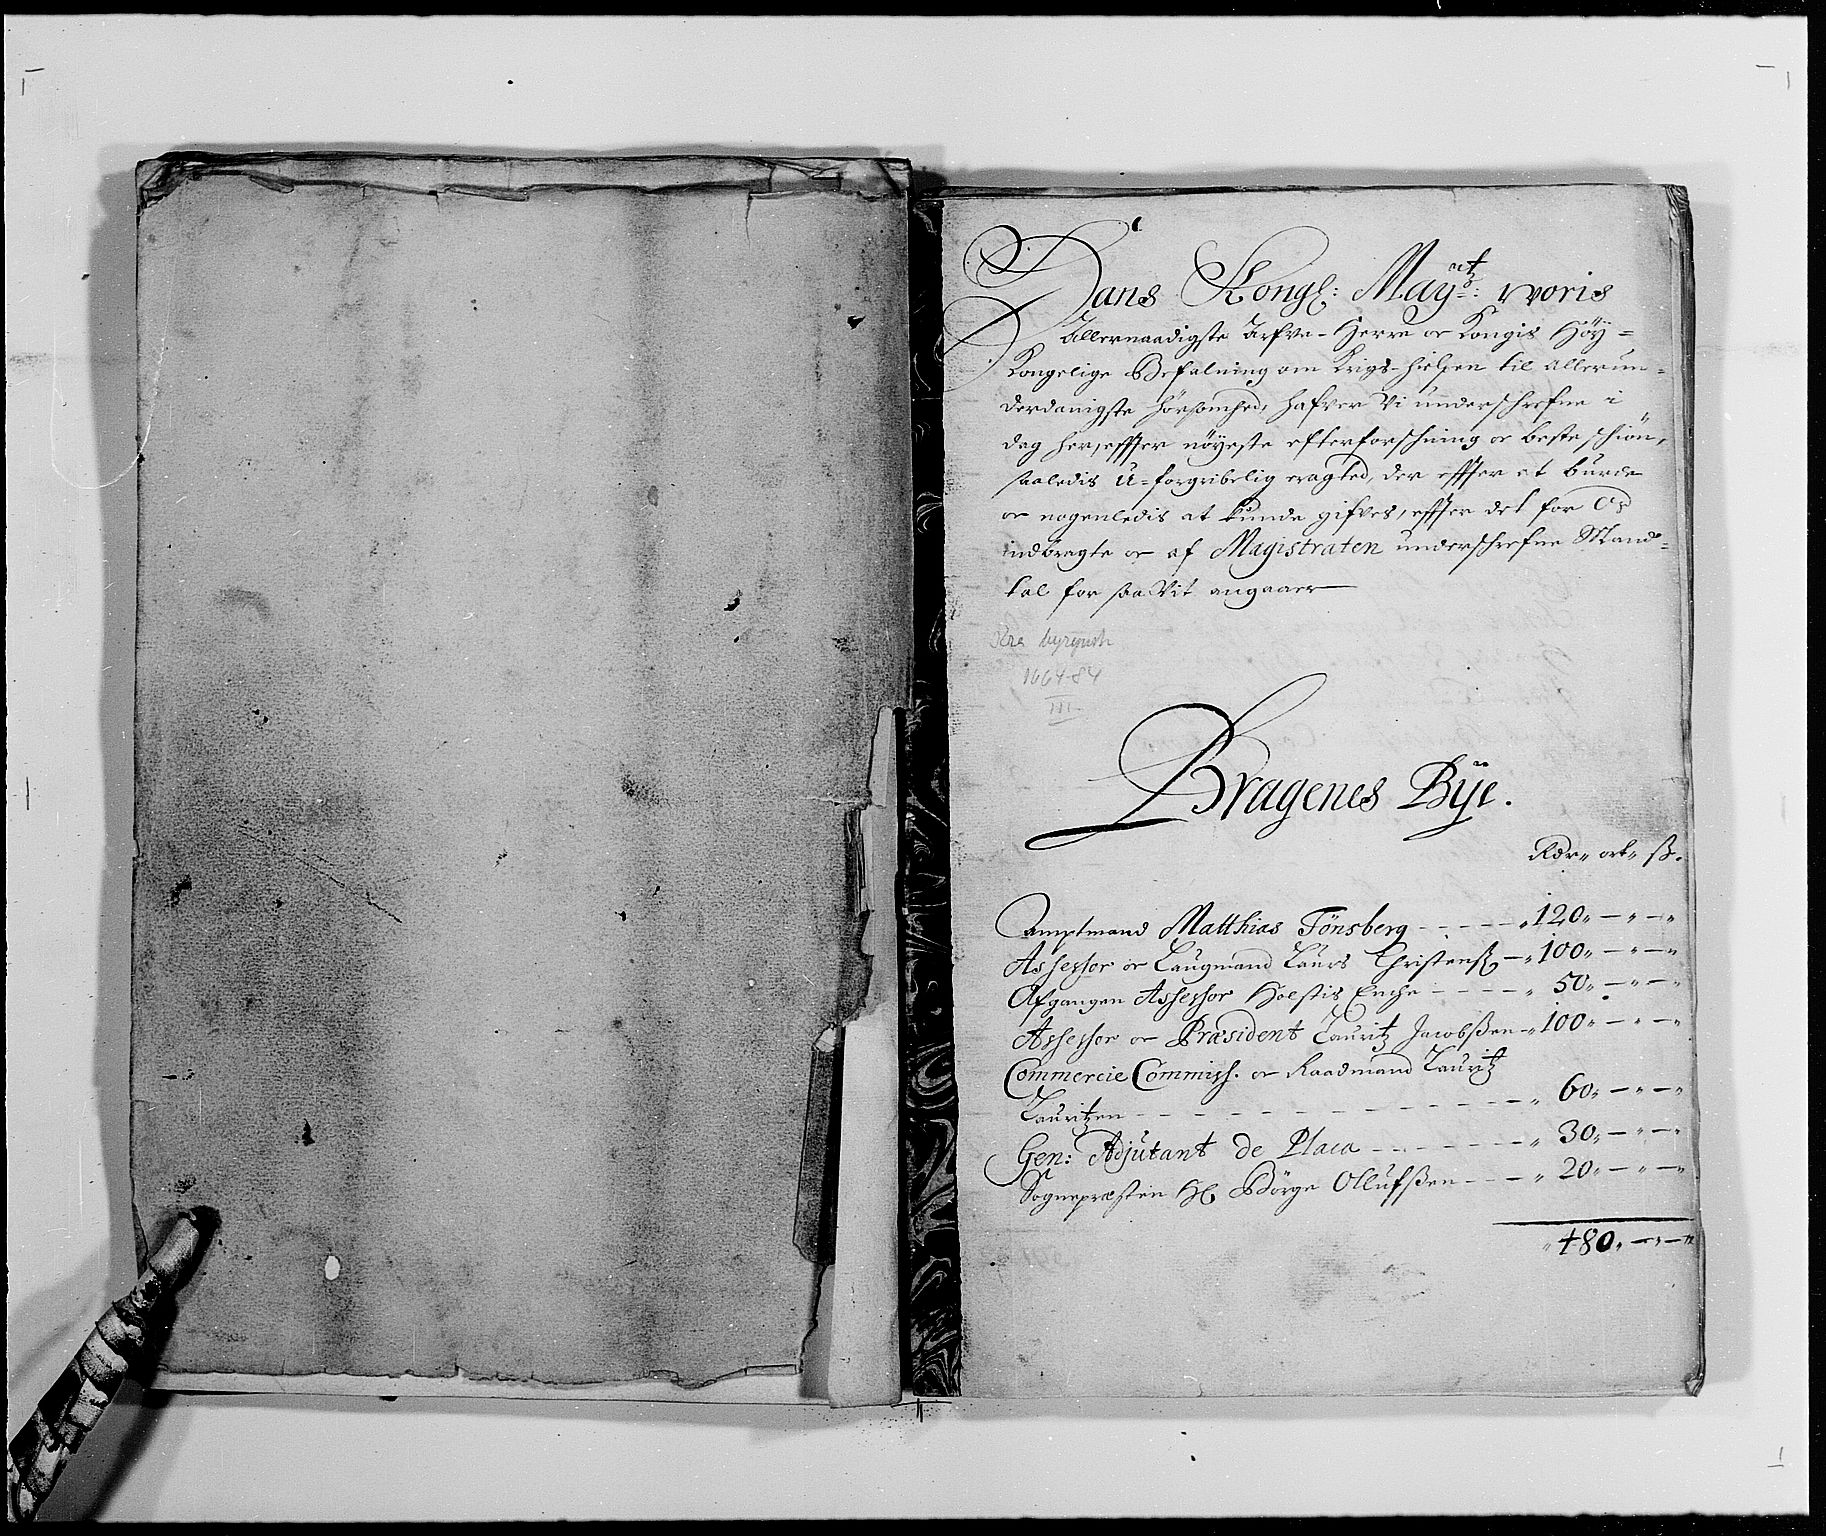 Hans Kongl: Mayᵗᶻ: woris
Allernaadigste Arfve-Herre oc Kongis Höy=
Kongelige Befalning om Krigs-hielpen til allerun=
derdanigste hörsomhed, hafver Vi underschrefne i
dag her, effter nöyeste efterforschning oc beste schiön,
saaledis U=forgribelig eragted, der effter at burde
oc nogenledis at kunde gifves, effter det for Os
indbragte oc af Magistraten underschrefne Mand=
tal for saa Vit angaaer
1664-84
III
Bragenes Bÿe.
Rdr„ ort„ ß.
Amptmand Matthias Tönsberg - - - - - „120„ — „ — „
Assessor oc Laugmand Laurs Christenß — „100„ — „ — „
Afgangen Assessor Holstis Enche - - - - „ 50„ — „ — „
Assessor oc Præsident Lauritz Jacobßen — „100„ — „ — „
Commercie Commiss. oc Raadmand Lauritz
Lauritzen - - - - - - - - - - - - „ 60„ — „ — „
Gen: Adjutant de Placa - - - - - - „ 30„ — „ — „
Sognepræsten Hr Börge Ollufßen - - - „ 20„ — „ — „
„ 480„ — „ — „